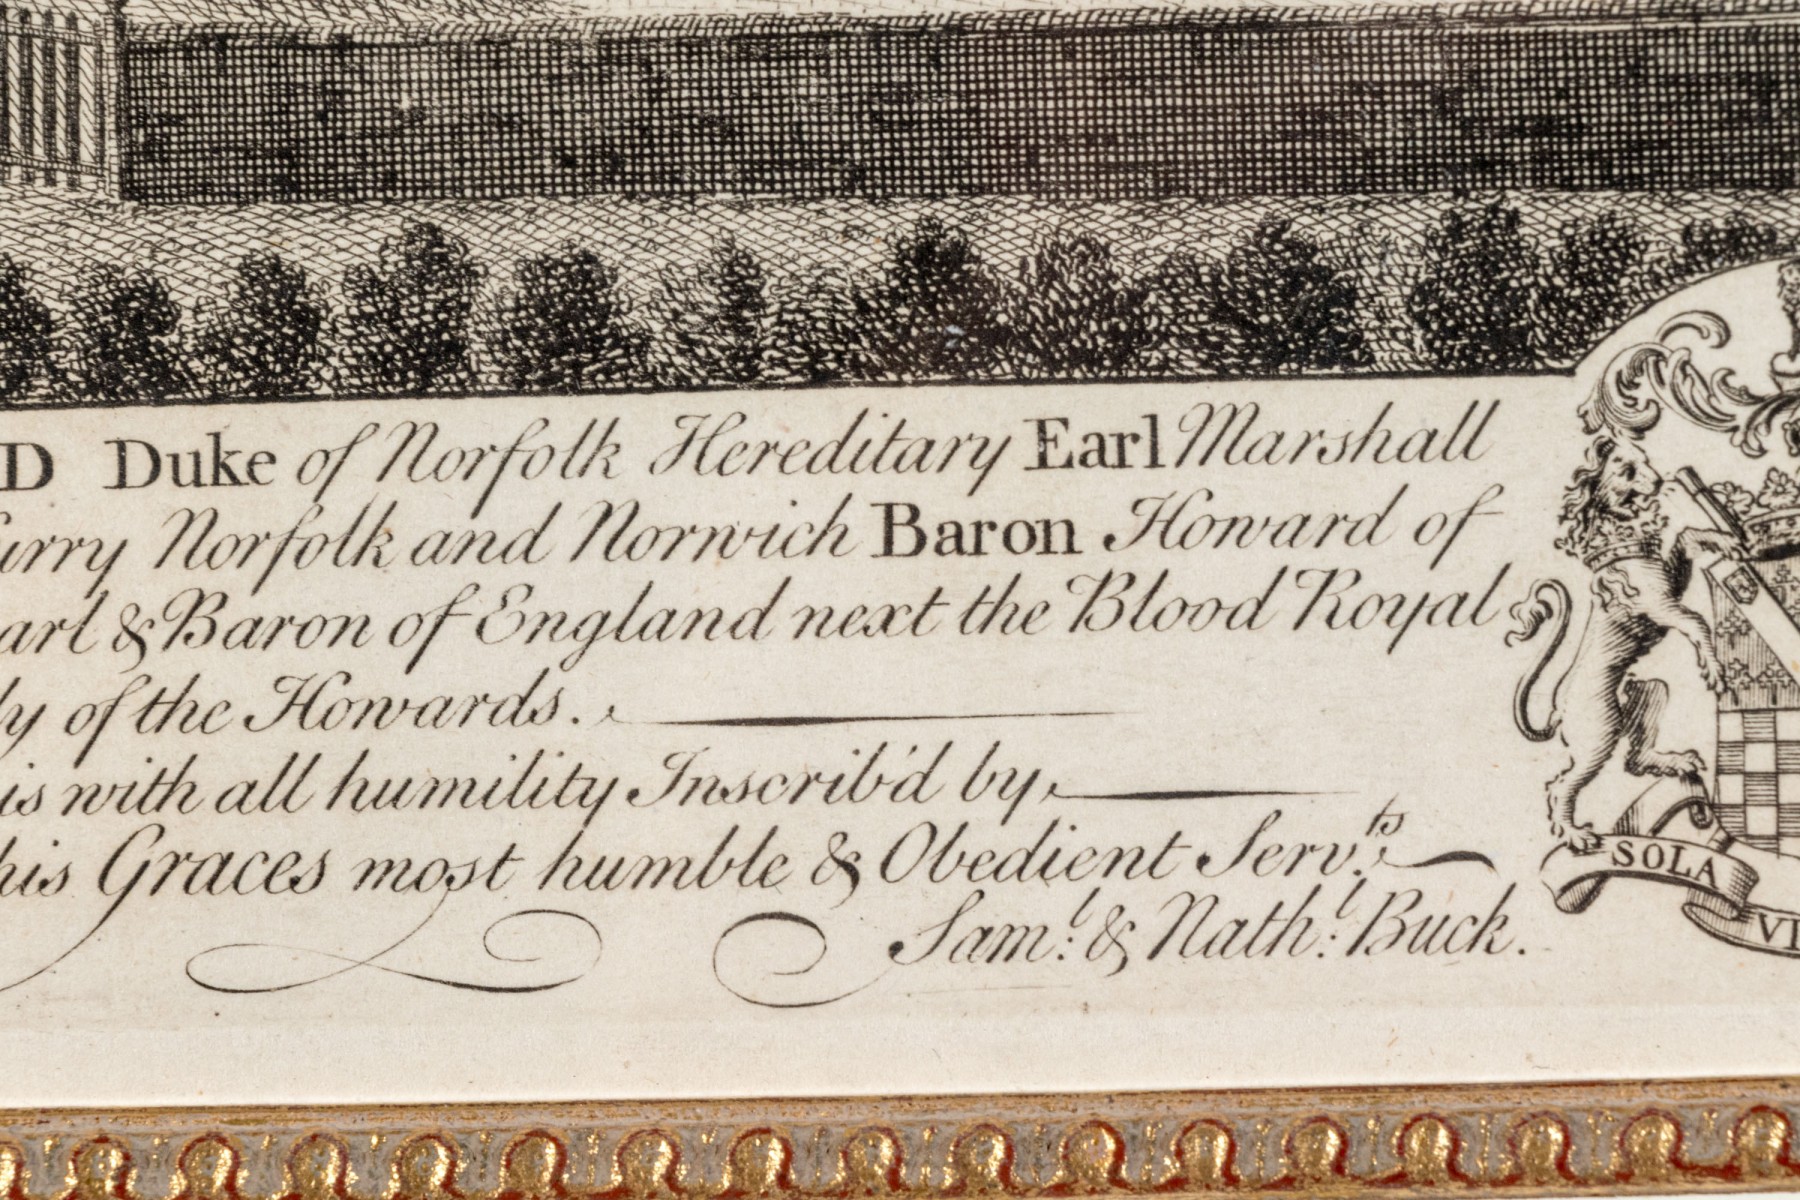 D Duke of Norfolk Hereditary Earl Marshall
urry Norfolk and Norwich Baron Howard of
arl & Baron of England next the Blood Royal
ly of the Howards.
is with all humility Inscrib'd by
his Graces most humble & Obedient Serv.ts
Sam.l & Nath.l Buck.
SOLA
VI